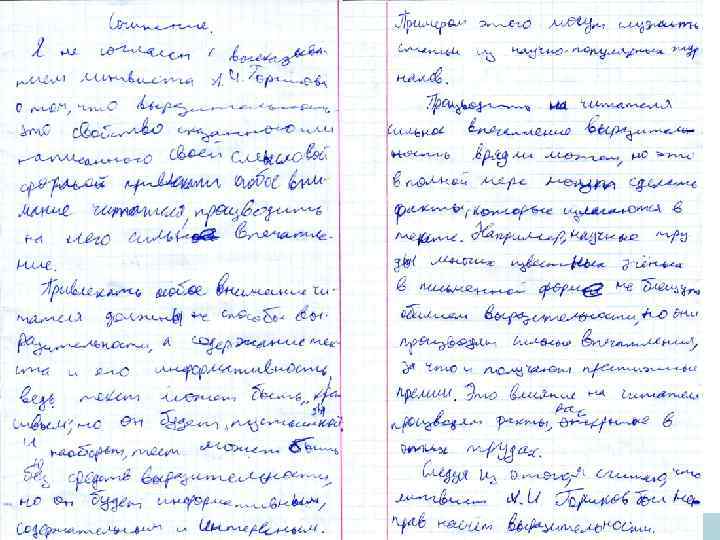 Сочинение.
Я не согласен с высказыва-
нием лингвиста А.И. Горшкова
о том, что выразительность-
это свойство сказанного или
написанного своей смысловой
формой привлекать особое вни-
мание читателя, производить
на него сильное впечатле-
ние.
Привлекать особое внимание чи-
тателя должны не способы вы-
разительности, а содержание тек-
ста и его информативность,
ведь текст может быть „кра-
сивым", но он будет „пустышкой".
И наоборот, текст может быть
без средств выразительности,
но он будет информативным,
содержательным и интересным.
Примером этого могут служить
статьи из научно-популярных жур
налов.
Производить на читателя
сильное впечатление выразитель-
ность врядли может, но это
в полной мере могут сделать
факты, которые излагаются в
тексте. Например, научные тру
ды многих известных учёных
в письменной форме не блещут
обилием выразительности, но они
производят сильное впечатление,
за что и получают престижные
премии. Это влияние на читателей
производят факты, раскрытые в
этих трудах.
Следуя из этого, я считаю, что
лингвист А.И Горшков был не
прав насчёт выразительности.